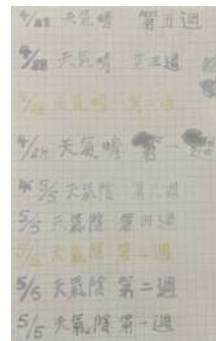 4/28 天氣晴 第五週
4/28 天氣晴 第三週
天氣晴 第二週
4/28 天氣晴 第一週
5/5 天氣陰 第六週
5/5 天氣陰 第四週
5/5 天氣陰 第三週
5/5 天氣陰 第二週
5/5 天氣陰 第一週